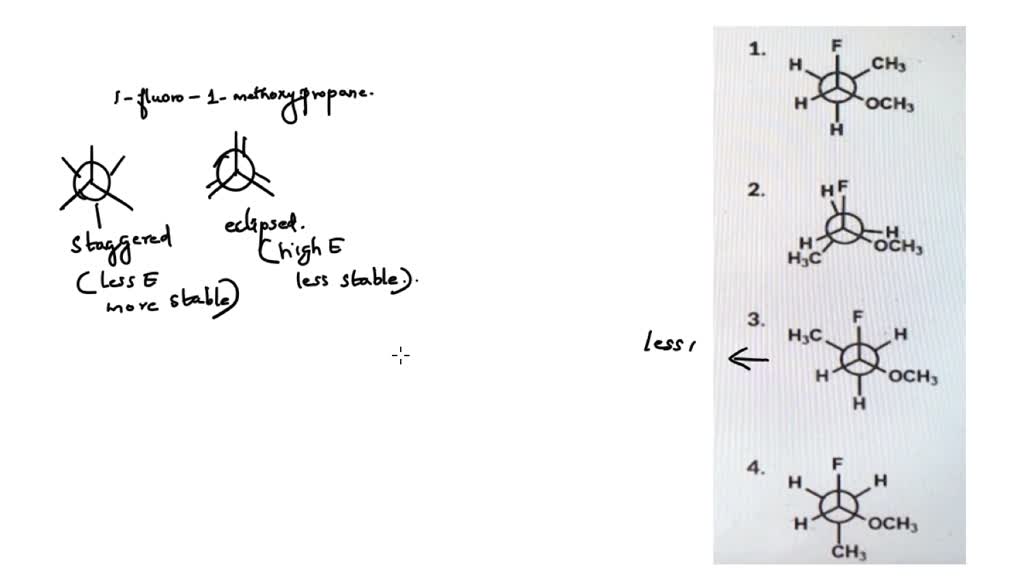 1-fluoro-1-methoxypropane.
staggered
(less E
more stable)
eclipsed.
(high E
less stable).
less,
1.
F
H
CH3
H
OCH3
H
2.
H F
H
H
OCH3
H3C
3.
F
H3C
H
H
OCH3
H
4.
F
H
H
H
OCH3
CH3